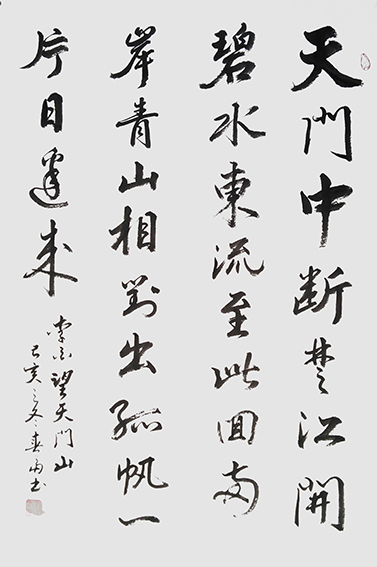 天門中断楚江開
碧水東流至此回两
岸青山相對出孤帆一
片日邊来
李白望天門山
己亥之冬春雨书